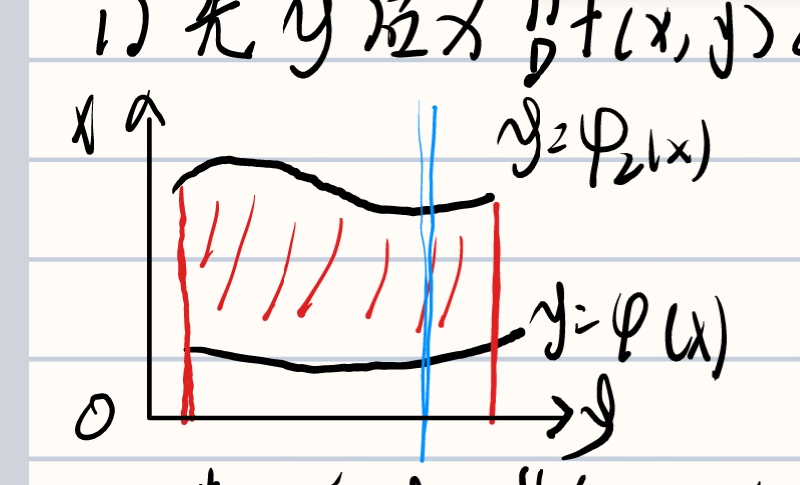 1) 先y后x ∬f(x,y)
D
x
y=φ₂(x)
y=φ(x)
O
y